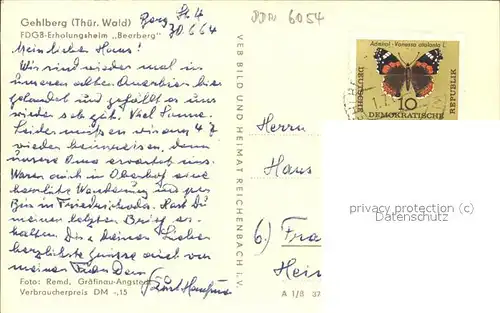 Gehlberg (Thür. Wald)
FDGB-Erholungsheim „Beerberg"
30.6.64
DDR 6054
Mein lieber Hans!
Wir sind wieder mal in
unserem alten Quartier hier
gelandet und gefällt es uns
wieder sehr gut. Viel Sonne.
Leider müssen wir am 4.7.
wieder heimreisen, denn
unsere Oma erwartet uns.
Waren auch in Oberhof eine
herrliche Wanderung und per
Bus in Friedrichroda. Hast Du
meinen letzten Brief er-
halten. Dir u. deinen Lieben
herzlichste Grüsse auch von
meiner Frau Dein
Foto: Remd, Gräfinau-Angstedt
Verbraucherpreis DM -,15
VEB BILD UND HEIMAT REICHENBACH i. V.
A 1/8 37
Herrn
Hans
6)
Admiral · Vanessa atalanta L.
DEUTSCHE
10
DEMOKRATISCHE
REPUBLIK
privacy protection (c)
Datenschutz (c)